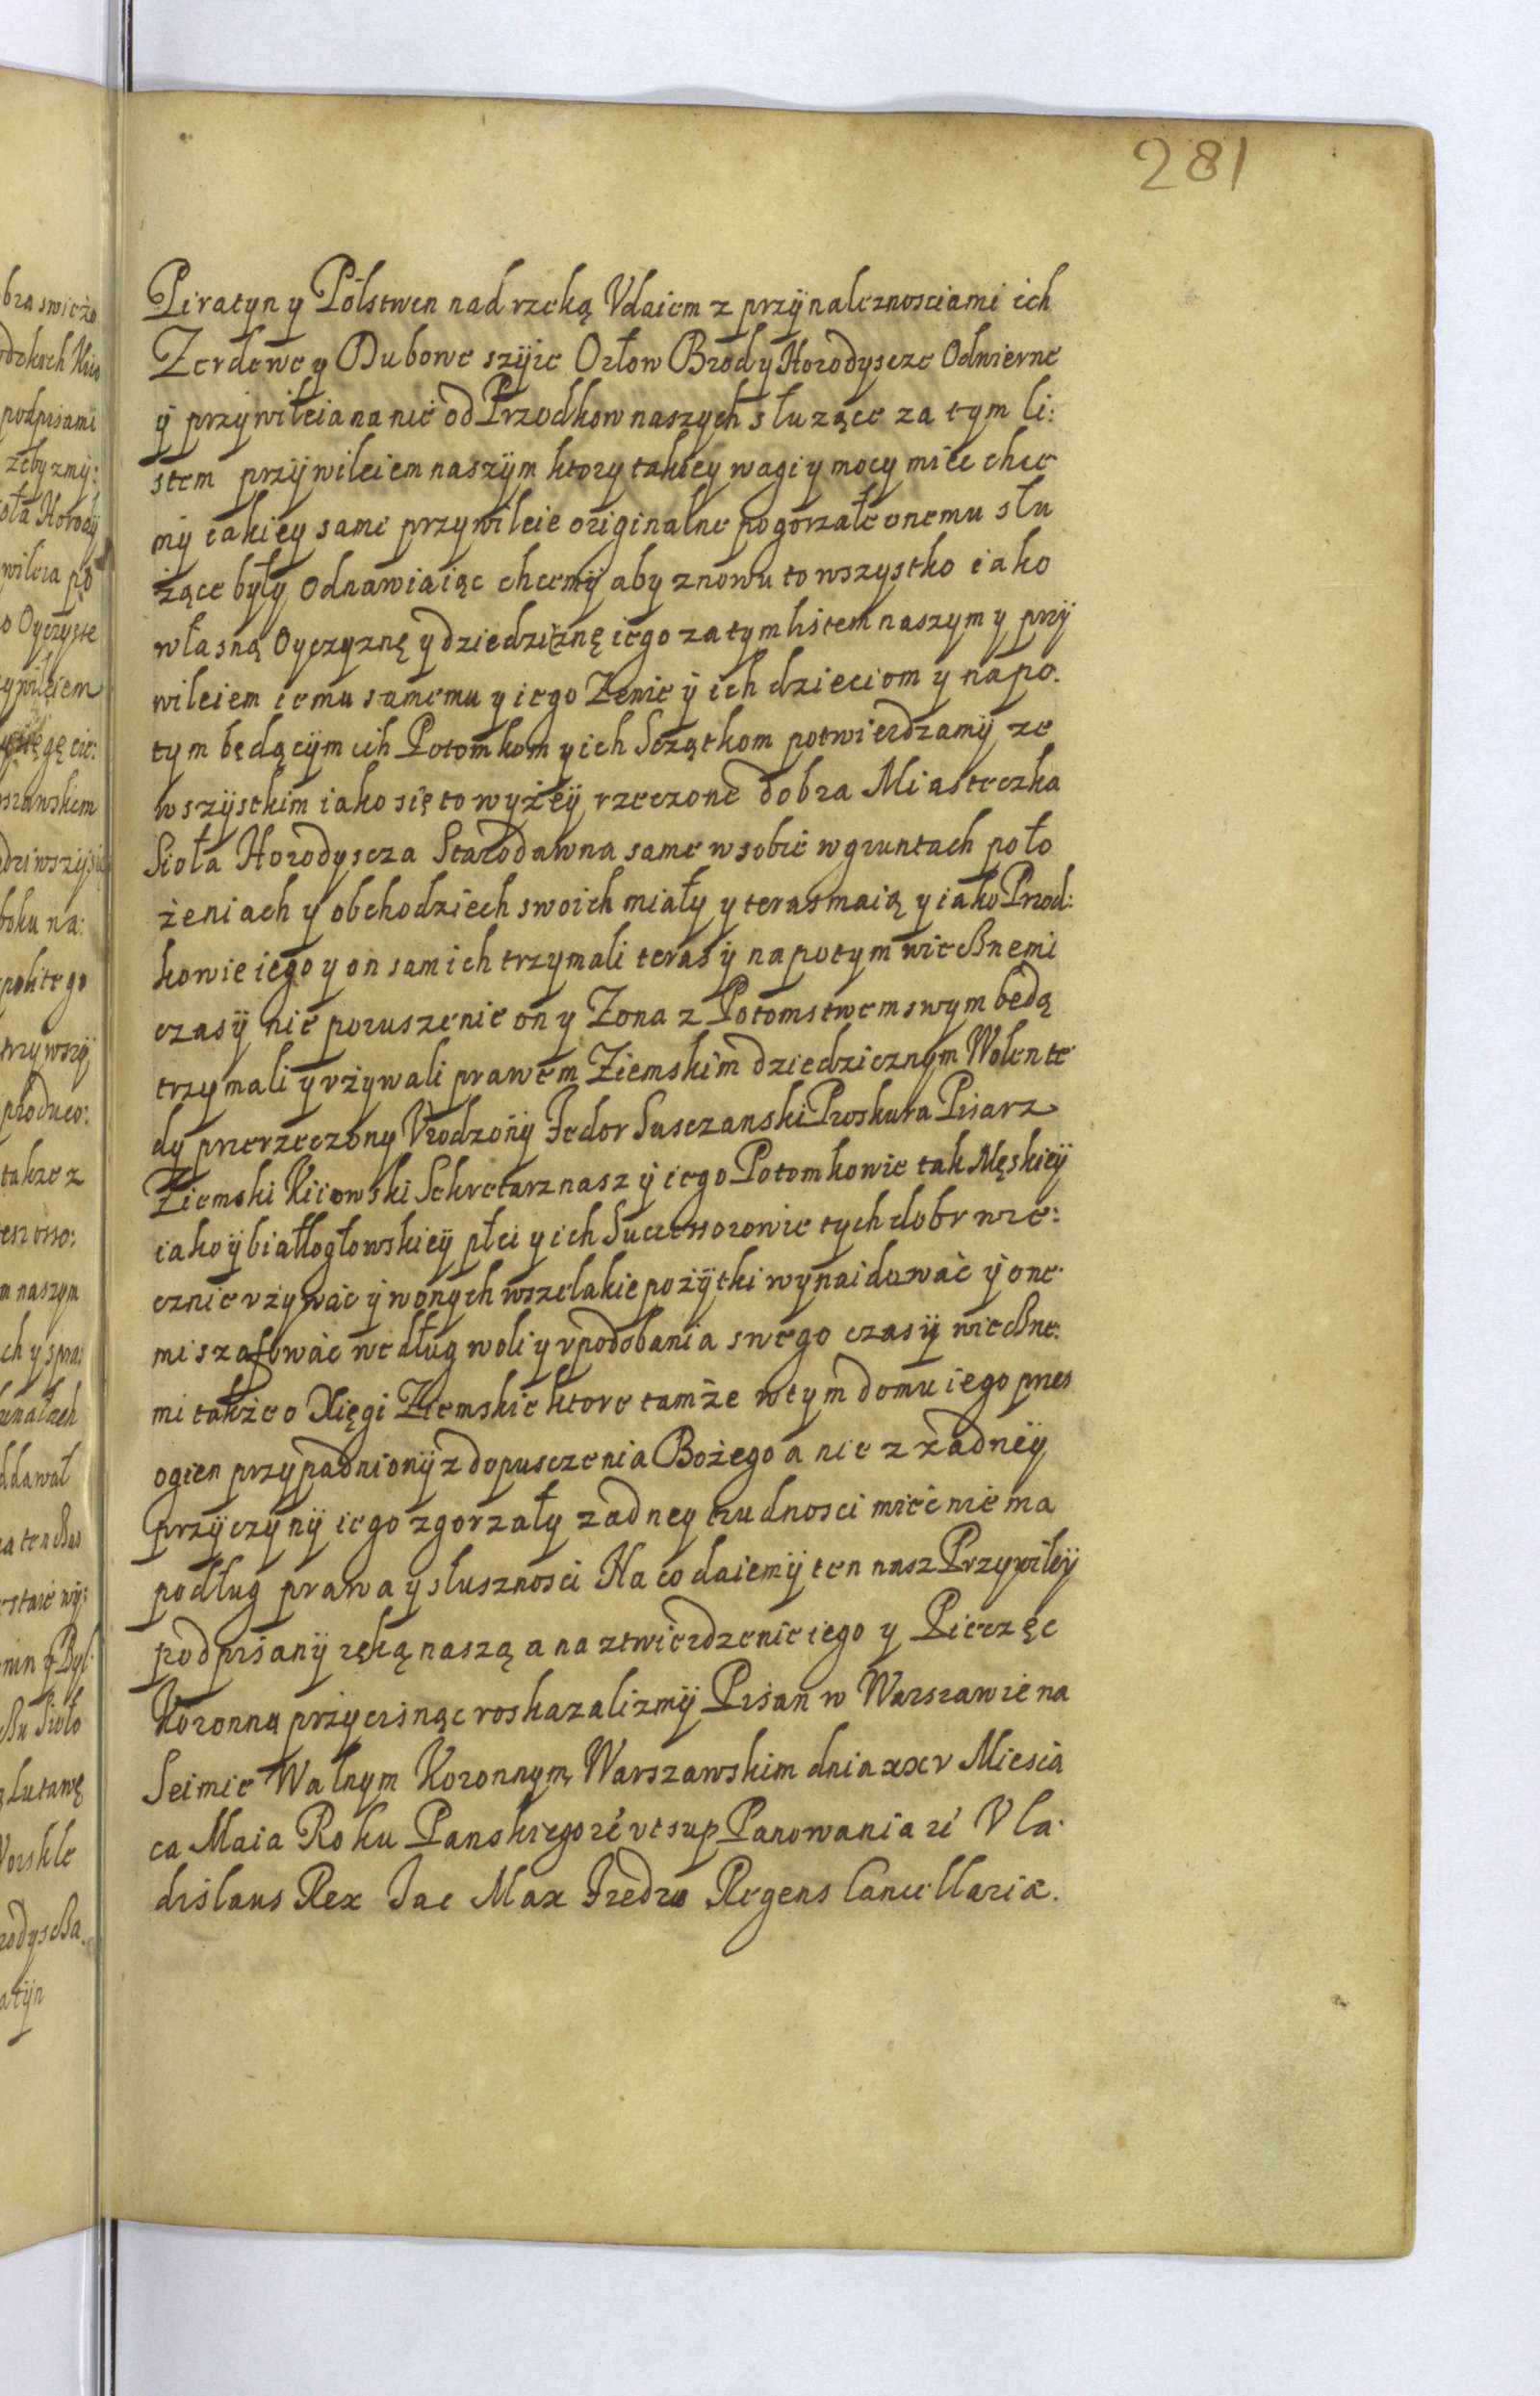 281
Piratyn y Polstwen nad rzeką Vdaiem z przÿnaleznosciami ich
Zerdewe y Dubowe szÿie Orłow Brody Horodyscze Odmierne
ÿ przÿwileia na nie od Przodkow naszych słuzące za tym li:
stem przÿwileiem naszÿm ktory takiey wagi y mocy miec chce
mÿ iakiey sami przywileie originalne pogorzałe onemu słu
żące były Odnawiaiąc chcemÿ aby znowu to wszystko iako
własną Oyczyznę y dziedziznę iego za tym listem naszym y prÿ
wileiem iemu samemu y iego Zenie ÿ ich dzieciom y napo.
tym będącÿm ich Potomkom y ich Sczątkom potwierdzamÿ ze
wszÿstkim iako się to wyżeÿ rzeczone dobra Miasteczka
Sioła Horodyscza Starodawna same w sobie w gruntach poło
żeniach y obchodziech swoich miały y teras maią y iako Przod:
kowie iego y on sam ich trzymali teras ÿ napotym wiecznemi
czasÿ nie poruszenie on y Zona z Potomstwem swym będą
trzymali y vżywali prawem Ziemskim dziedzicznym Wolen te
dy przerzeczony Vrodzonÿ Fedor Susczanski Proskura Pisarz
Ziemski Kiiowski Sekretarz nasz ÿ iego Potomkowie tak Męskieÿ
iako ÿ białłogłowskieÿ płci y ich Successorowie tych dobr wie:
cznie vżywać ÿ w onych wszelakie pożÿtki wynaidować ÿ one
mi szafować według woli y vpodobania swego czasÿ wieczne:
mi także o Xięgi Ziemskie ktore tamże w tym domu iego przes
ogien przypadnionÿ z dopusczenia Bożego a nie z żadneÿ
przÿczynÿ iego zgorzały zadney trudnosci mieć nie ma
podług prawa y słusznosci Na co daiemÿ ten nasz Przywileÿ
podpisanÿ ręką naszą a na ztwierdzenie iego y Pieczęc
Koronną przÿcisnąc roskazalizmÿ Pisan w Warszawie na
Seimie Walnym Koronnym Warszawskim dnia xxv Miesią
ca Maia Roku Panskiego rc vt sup Panowania rc Vla.
dislaus Rex Jac Max Fredro Regens Cancellariæ.